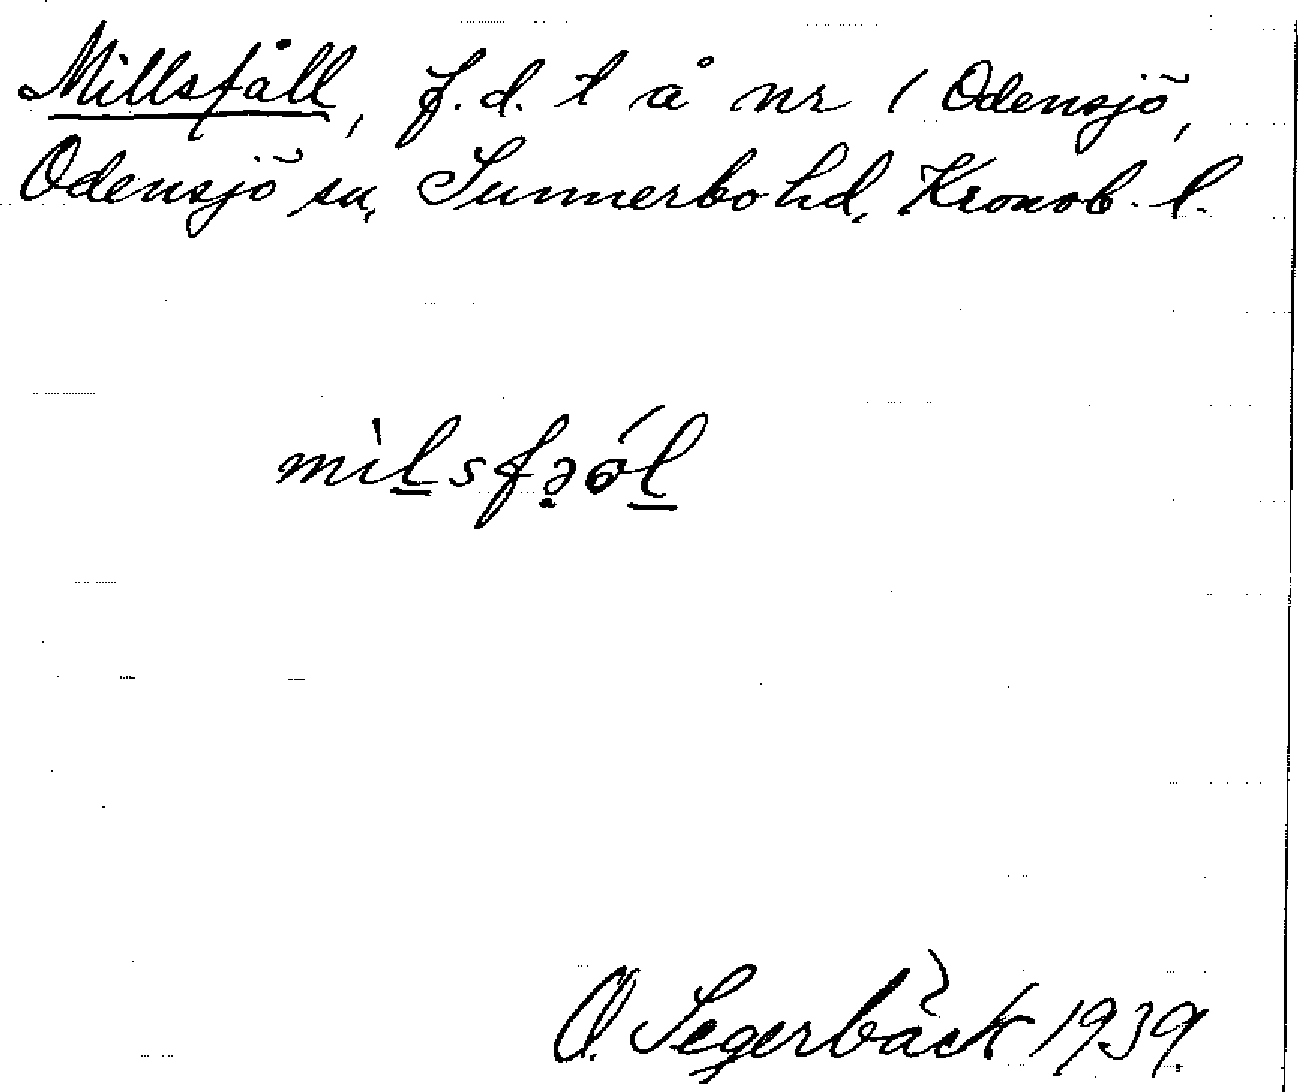 Millsfåll, f.d. t å nr 1 Odensjö,
Odensjö sn, Sunnerbo hd, Kronob. l.
mìl̠sfə̣ól̠
O. Segerbäck 1939.